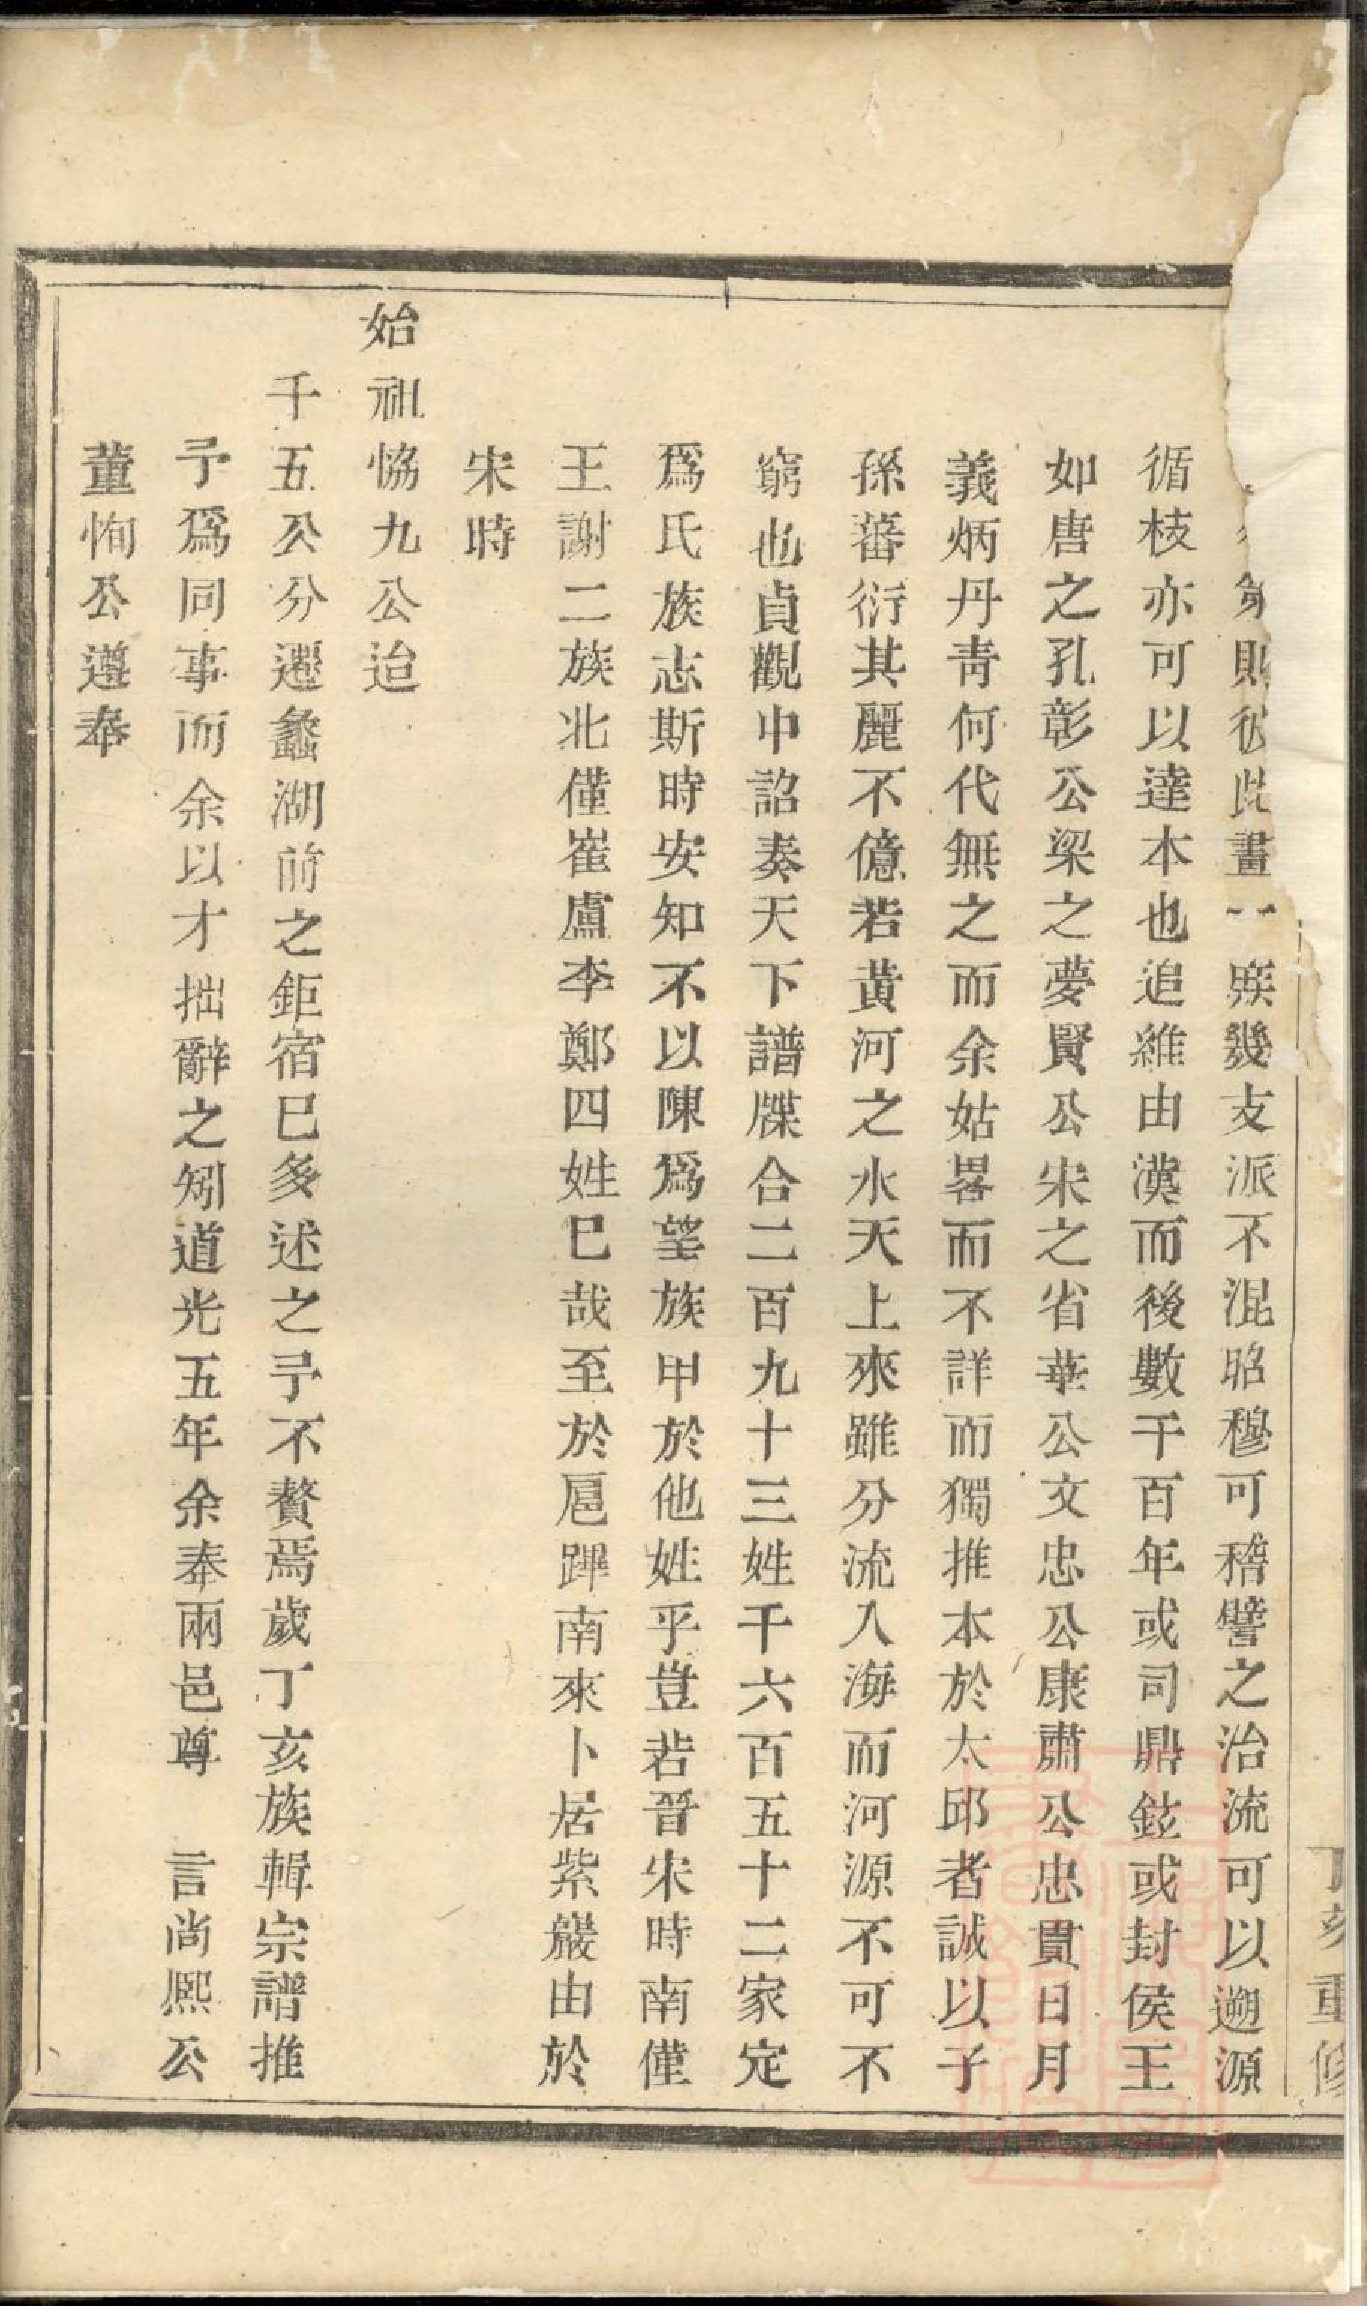 丁亥重修
則彼此畫一族幾支派不混昭穆可稽譬之治流可以遡源
循枝亦可以達本也追維由漢而後數千百年或司鼎鉉或封侯王
如唐之孔彰公梁之夢賢公宋之省華公文忠公康肅公忠貫日月
義炳丹青何代無之而余姑畧而不詳而獨推本於太邱者誠以子
孫蕃衍其麗不億若黃河之水天上來雖分流入海而河源不可不
窮也貞觀中詔奏天下譜牒合二百九十三姓千六百五十二家定
爲氏族志斯時安知不以陳爲望族甲於他姓乎豈若晉宋時南僅
王謝二族北僅崔盧李鄭四姓巳哉至於扈蹕南來卜居紫巖由於
宋時
始祖恊九公迨
千五公分遷蠡湖前之鉅宿巳多述之予不贅焉歲丁亥族輯宗譜推
予爲同事而余以才拙辭之矧道光五年余奉兩邑尊　言尚熙公
董恂公遵奉